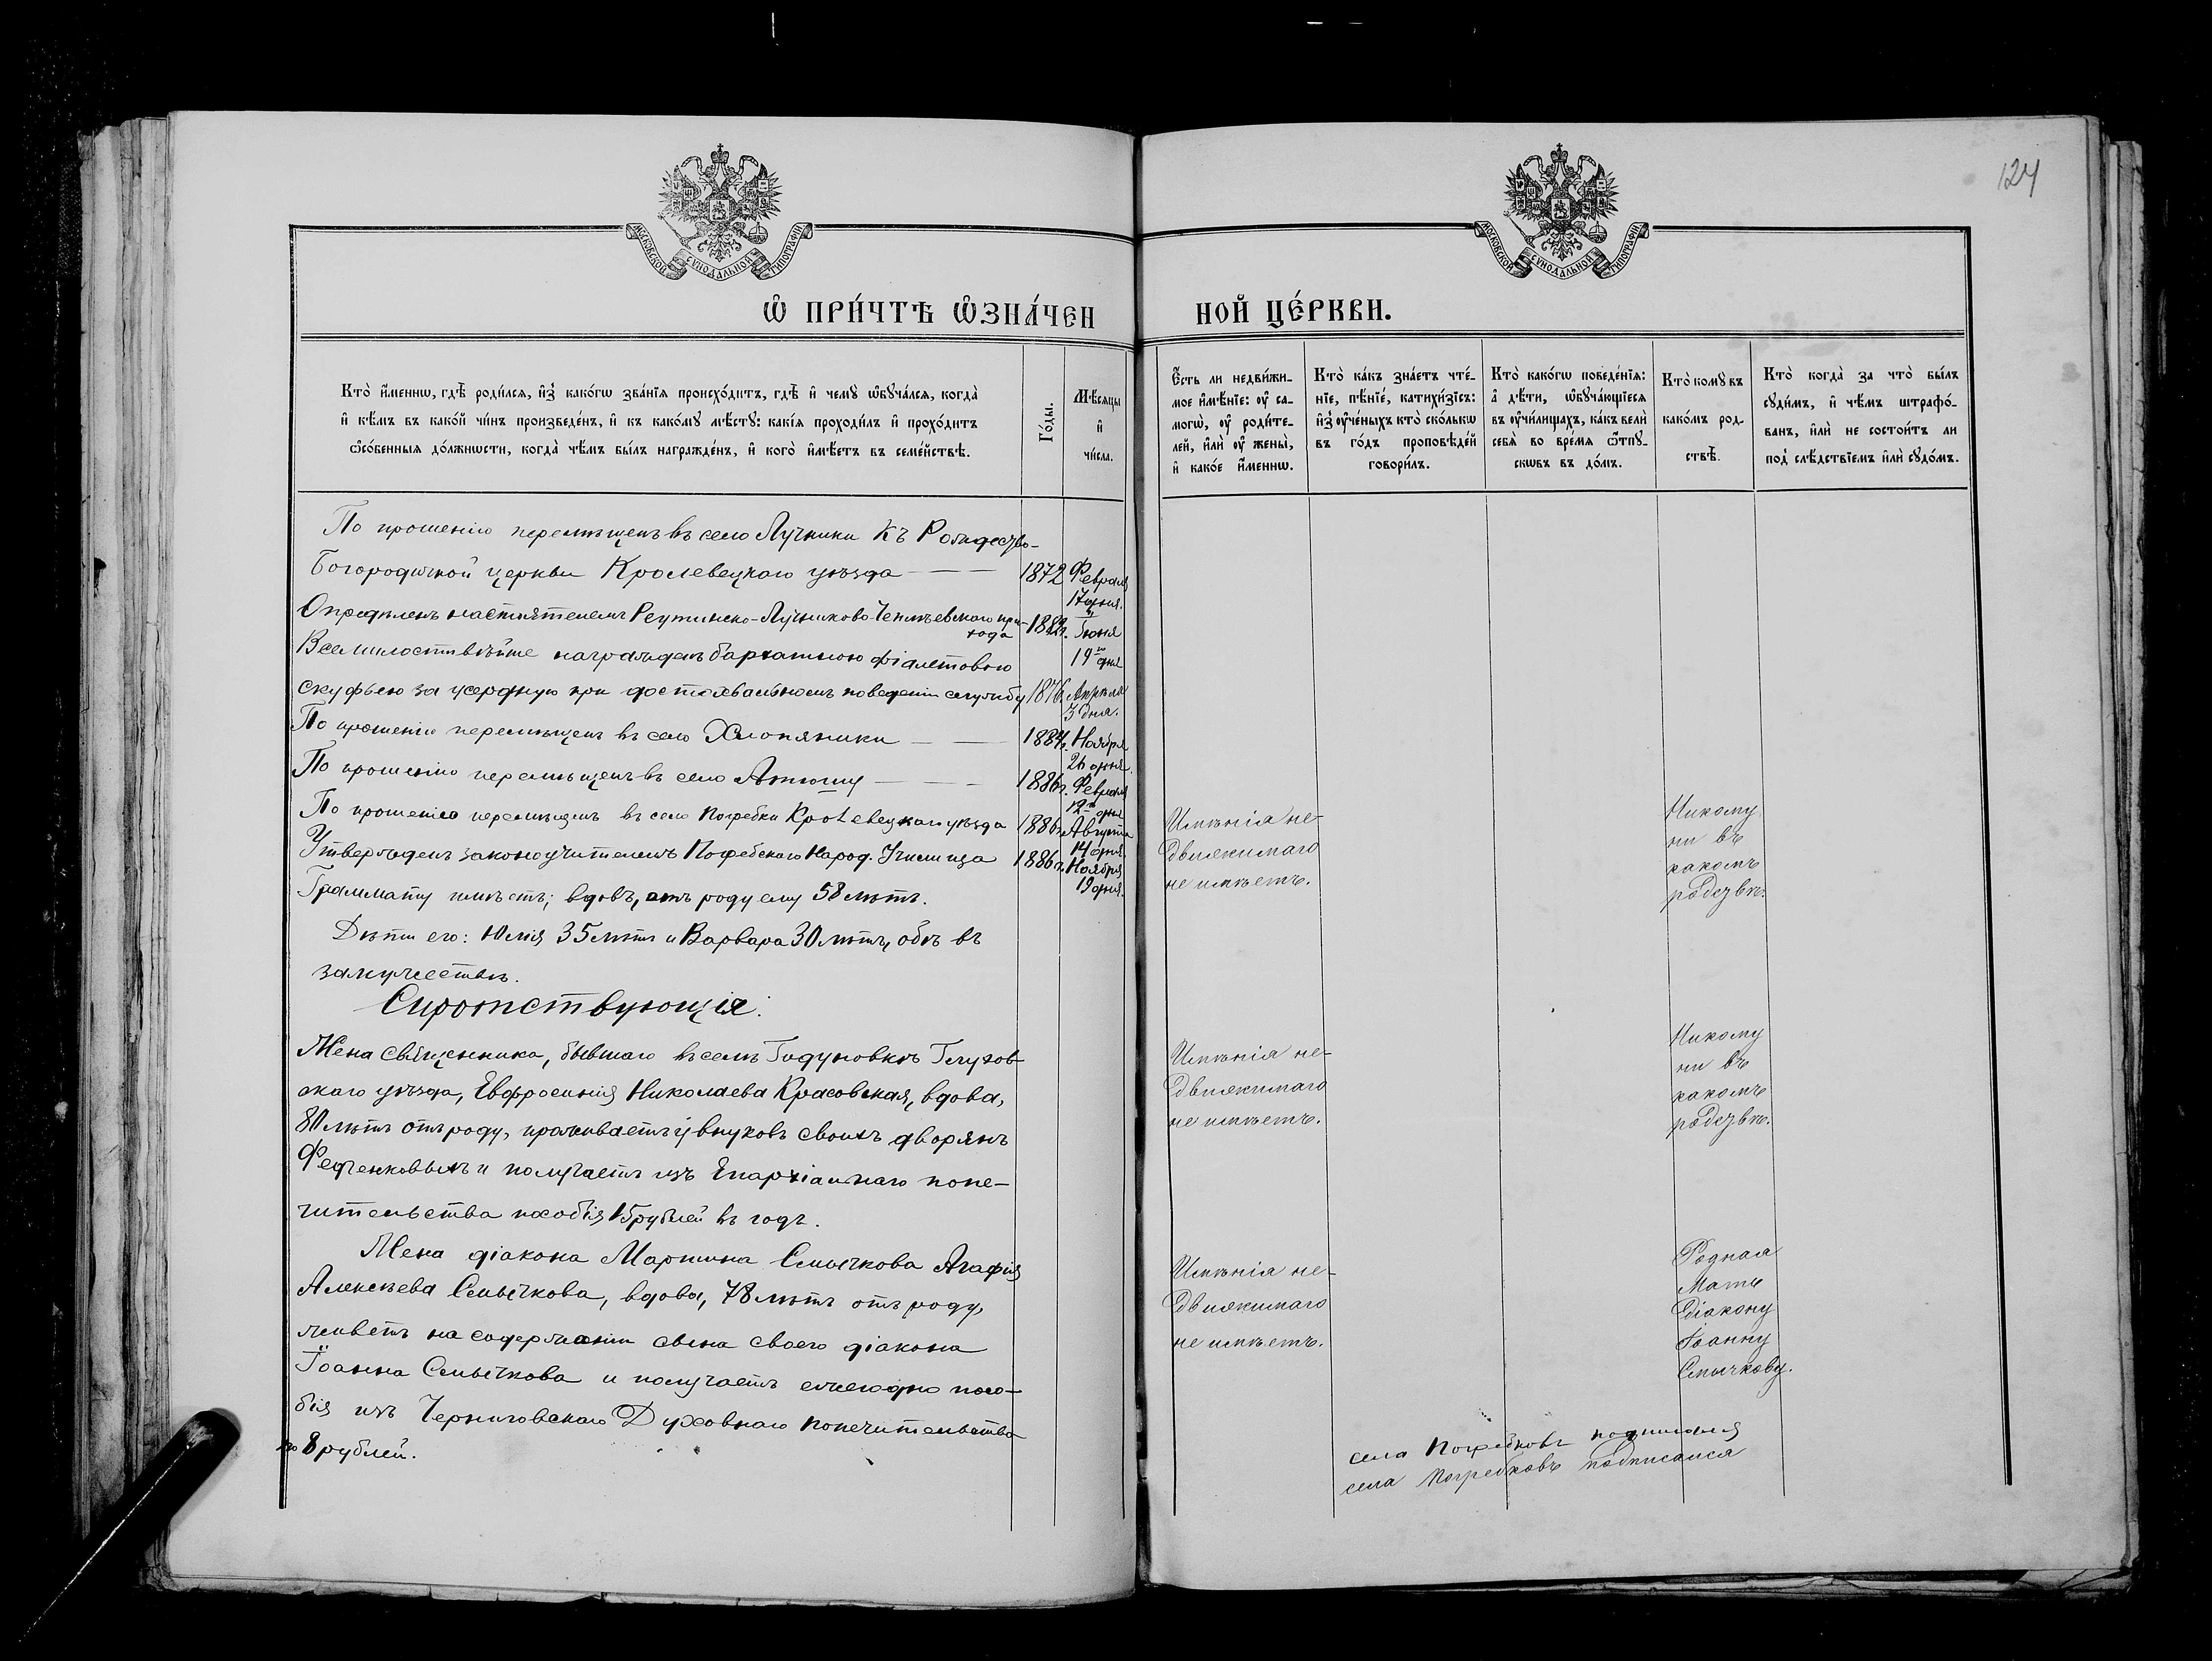 124
МОСКОВСКОЙ СѴНОДАЛЬНОЙ ТИПОГРАФІИ
МОСКОВСКОЙ СѴНОДАЛЬНОЙ ТИПОГРАФІИ
Ѽ ПРИ́ЧТѢ ѼЗНА́ЧЕН
НОЙ ЦЕ́РКВИ.
Кто̀ и҆́меннѡ, гдѣ̀ роди́лсѧ, и҆з̾ како́гѡ зва́нїѧ происхо́дитъ, гдѣ̀ и҆ чемꙋ̀ ѡ҆бꙋча́лсѧ, когда̀
и҆ кѣ́мъ въ како́й чи́нъ произведе́нъ, и҆ къ како́мꙋ мѣ́стꙋ: какі́ѧ проходи́лъ и҆ прохо́дитъ
ѻ҆со́бенныѧ до́лжнѡсти, когда̀ чѣ́мъ бы́лъ награжде́нъ, и҆ кого̀ и҆мѣ́етъ въ семе́йствѣ.
Го́ды.
Мѣ́сѧцы
и҆
чи́сла.
Е҆́сть ли недви́жи-
мое и҆мѣ́нїе: оу҆ са-
могѡ̀, оу҆ роди́те-
лей, и҆лѝ оу҆ жены̀,
и҆ како́е и҆́меннѡ.
Кто̀ ка́къ зна́етъ чте́-
нїе, пѣ́нїе, катихи́зїсъ:
и҆з̾ оу҆че́ныхъ кто̀ ско́лькѡ
въ го́дъ проповѣ́дей
говори́лъ.
Кто̀ како́гѡ поведе́нїѧ:
а҆ дѣ́ти, ѡ҆бꙋча́ющїесѧ
въ оу҆чи́лищахъ, ка́къ велѝ
себѧ̀ во вре́мѧ ѿпꙋ-
скѡвъ въ до́мъ.
Кто̀ комꙋ̀ въ
како́мъ род-
ствѣ̀.
Кто̀ когда̀ за что̀ бы́лъ
сꙋди́мъ, и҆ чѣ́мъ штрафо́-
ванъ, и҆лѝ не состои́тъ ли
под̾ слѣ́дствїемъ и҆лѝ сꙋдо́мъ.
По прошенію перемѣщенъ въ село Лучники къ Рождество-
Богородичной церкви Кролевецкаго уѣзда — — 1872 Февраля
17 дня.
Опредѣленъ настоятелемъ Реутинско-Лучниково- при-
хода Іюня
19го дня
Всемилостивѣйше награжденъ бархатною фіолетовою
скуфьею за усердную при достохвальномъ поведеніи службу 1876. Апрѣля
3 дня.
По прошенію перемѣщенъ въ село Хлопяники — — 1884г. Ноября
26 дня.
По прошенію перемѣщенъ въ село Атюшу — — 1886г. Февраля
12го дня
По прошенію перемѣщенъ въ село Погребки Кролевецкаго уѣзда 1886г. Августа
14 дня.
Утвержденъ законоучителемъ Погребскаго Народ. Училища 1886г. Ноября
19 дня.
Граммату имѣетъ; вдовъ, отъ роду ему 58 лѣтъ.
Дѣти его: Юлія 35 лѣтъ и Варвара 30 лѣтъ, обѣ въ
замужествѣ.
Имѣнія не-
движимаго
не имѣетъ.
Никому
ни въ
какомъ
родствѣ.
Сиротствующія:
Жена священника, бывшаго въ селѣ Годуновкѣ Глухов-
скаго уѣзда, Евфросинія Николаева Красовская, вдова,
80 лѣтъ отъ роду, проживаетъ у внуковъ своихъ дворянъ
Федченковыхъ и получаетъ изъ Епархіальнаго попе-
чительства пособія 15 рублей въ годъ.
Имѣнія не-
движимаго
не имѣетъ.
Никому
ни въ
какомъ
родствѣ.
Жена діакона Мартина Смычкова Агафія
Алексѣева Смычкова, вдова, 78 лѣтъ отъ роду,
живетъ на содержаніи сына своего діакона
Іоанна Смычкова и получаетъ ежегодно посо-
бія изъ Черниговскаго Духовнаго попечительства
по 8 рублей.
Имѣнія не-
движимаго
не имѣетъ.
Родная
Мать
Діакону
Іоанну
Смычкову.
села Погребковъ подписался
села Погребковъ подписался